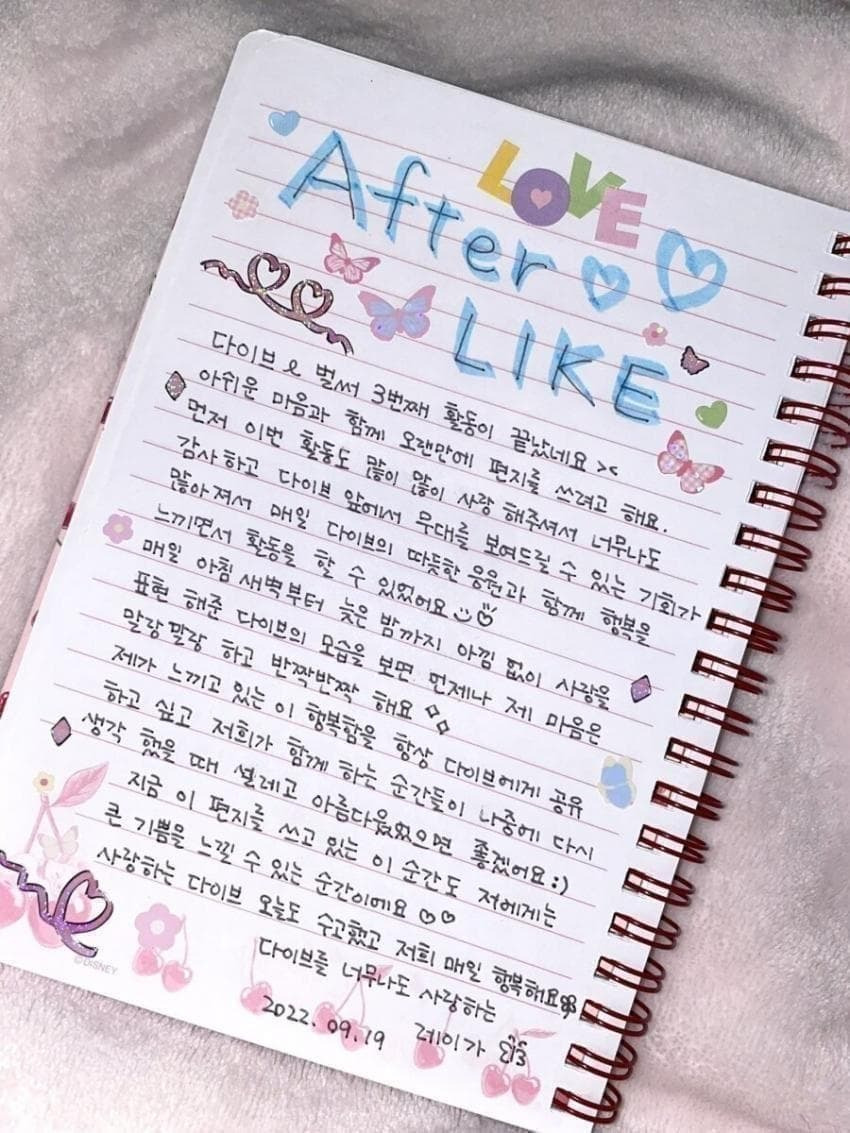 LOVE
After
LIKE
다이브 ℓ 벌써 3번째 활동이 끝났네요 ><
아쉬운 마음과 함께 오랜만에 편지를 쓰려고 해요.
먼저 이번 활동도 많이 많이 사랑 해주셔서 너무나도
감사하고 다이브 앞에서 무대를 보여드릴 수 있는 기회가
많아져서 매일 다이브의 따듯한 응원과 함께 행복을
느끼면서 활동을 할 수 있었어요
매일 아침 새벽부터 늦은 밤까지 아낌 없이 사랑을
표현 해준 다이브의 모습을 보면 언제나 제 마음은
말랑말랑 하고 반짝반짝 해요
제가 느끼고 있는 이 행복함을 항상 다이브에게 공유
하고 싶고 저희가 함께 하는 순간들이 나중에 다시
생각 했을 때 설레고 아름다웠었으면 좋겠어요 :)
지금 이 편지를 쓰고 있는 이 순간도 저에게는
큰 기쁨을 느낄 수 있는 순간이에요 ♡♡
사랑하는 다이브 오늘도 수고했고 저희 매일 행복해요
다이브를 너무나도 사랑하는
2022. 09. 19 레이가
©DISNEY